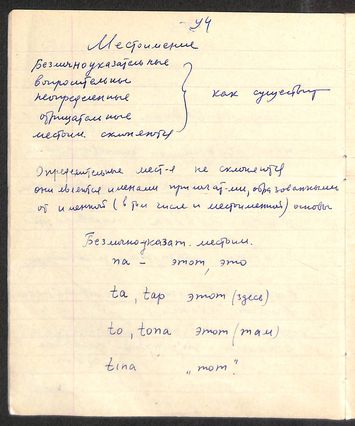 - 44
Местоимение
Безличноуказательные
вопросительные
неопределенные
отрицательные
местоим. склоняются
как существит
Определительные мест-я не склоняются
они являются именами прилагат-ми, образованными
от именной (в том числе и местоименной) основы
Безличноуказат. местоим.
na - этот, это
ta, tap этот (здесь)
to, tona этот (там)
tina "тот".